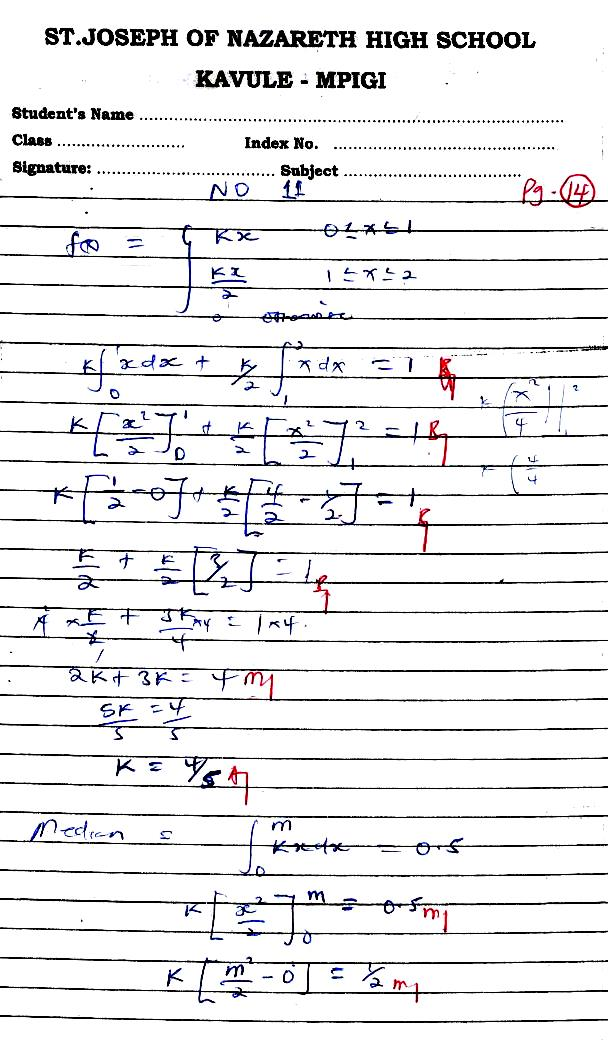 ST.JOSEPH OF NAZARETH HIGH SCHOOL
KAVULE - MPIGI
Student's Name ........................................
Class ........................ Index No. ........................
Signature: ........................ Subject ........................
NO 11 Pg - 14
f(x) = { Kx 0 ≤ x ≤ 1
Kx/2 1 ≤ x ≤ 2
0 otherwise
K∫₀¹ x dx + K/2 ∫₁² x dx = 1 B1
K[x²/2]₀¹ + K/2 [x²/2]₁² = 1 B1
K(x²/4)|₁²
K(4/4
K[1/2 - 0] + K/2 [4/2 - 1/2] = 1 B1
K/2 + K/2 [3/2] = 1 B1
4 × K/2 + 3K/4 ×4 = 1×4.
2K + 3K = 4 M1
5K/5 = 4/5
K = 4/5 A1
Median = ∫₀ᵐ Kxdx = 0.5
K[x²/2]₀ᵐ = 0.5 M1
K[m²/2 - 0] = 1/2 M1